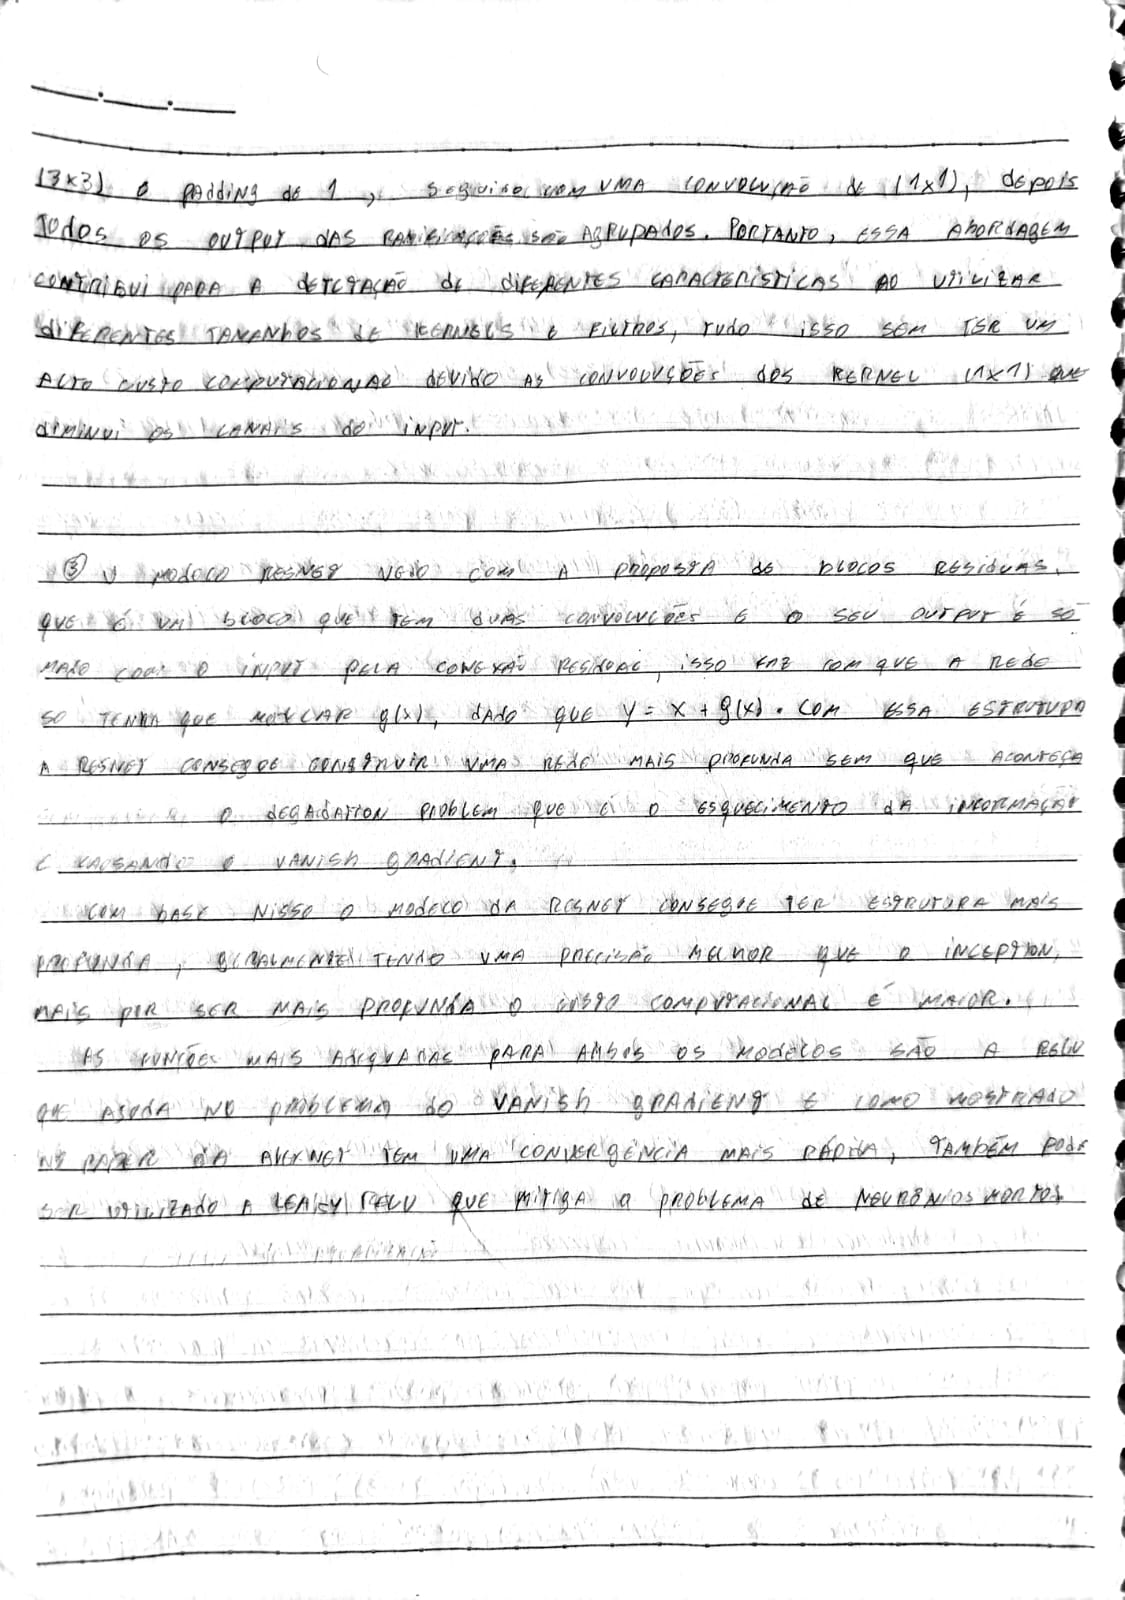 (3x3) e padding de 1, seguido com uma convolução de (1x1), depois
todos os output das ramificações são agrupados. Portanto, essa abordagem
contribui para a detctação de diferentes características ao utilizar
diferentes tamanhos de kernels e filtros, tudo isso sem ter um
alto custo computacional devido as convoluções dos kernel (1x1) que
diminui os canais do input.
③ O modelo ResNet veio com a proposta de blocos residuas,
que é um bloco que tem duas convoluções e o seu output é so
mado com o input pela conexão residual, isso faz com que a rede
so tenha que g(x), dado que y = x + g(x). Com essa estrutura
a ResNet consegue construir uma rede mais profunda sem que aconteça
o degadation problem que é o esquecimento da informação
e causando o vanish gradient.
Com base nisso o modelo da ResNet consegue ter estrutura mais
profunda, geralmente tendo uma precisão melhor que o Inception,
mais por ser mais profunda o custo computacional é maior.
As funções mais adequadas para ambos os modelos são a Relu
que ajuda no problema do vanish gradieng e como mostrado
no paper da AlexNet tem uma convergência mais rápida, também pode
ser utilizado a Leaky Relu que mitiga o problema de neurônios mortos